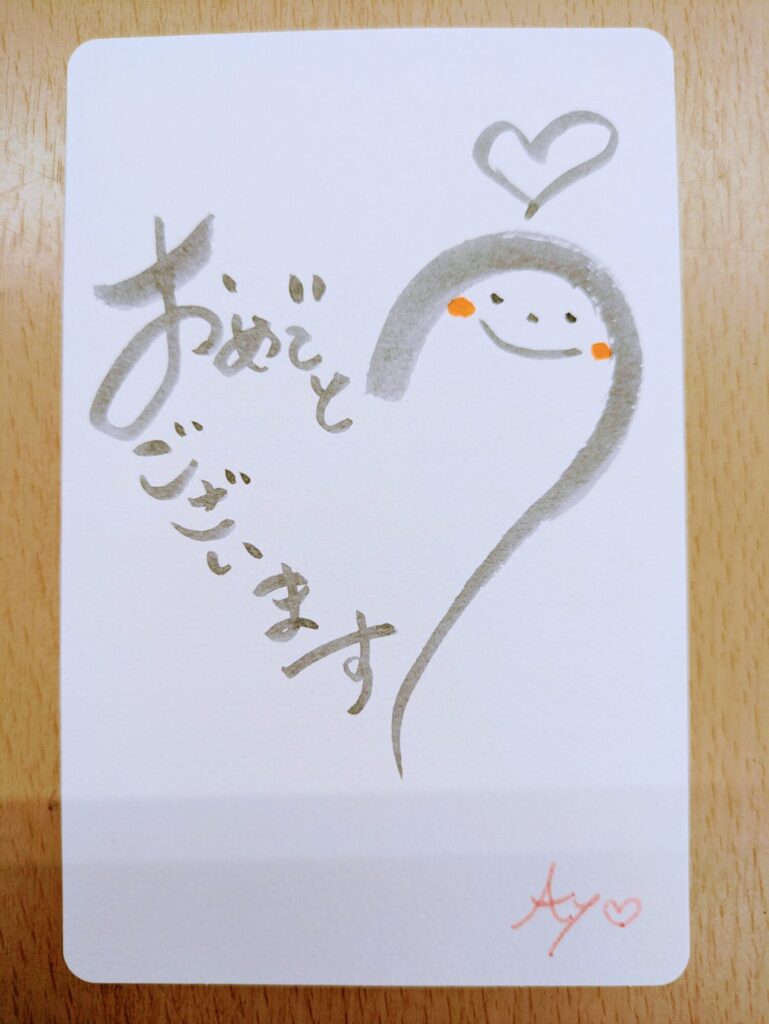 おめでとう
ございます
Ay♡